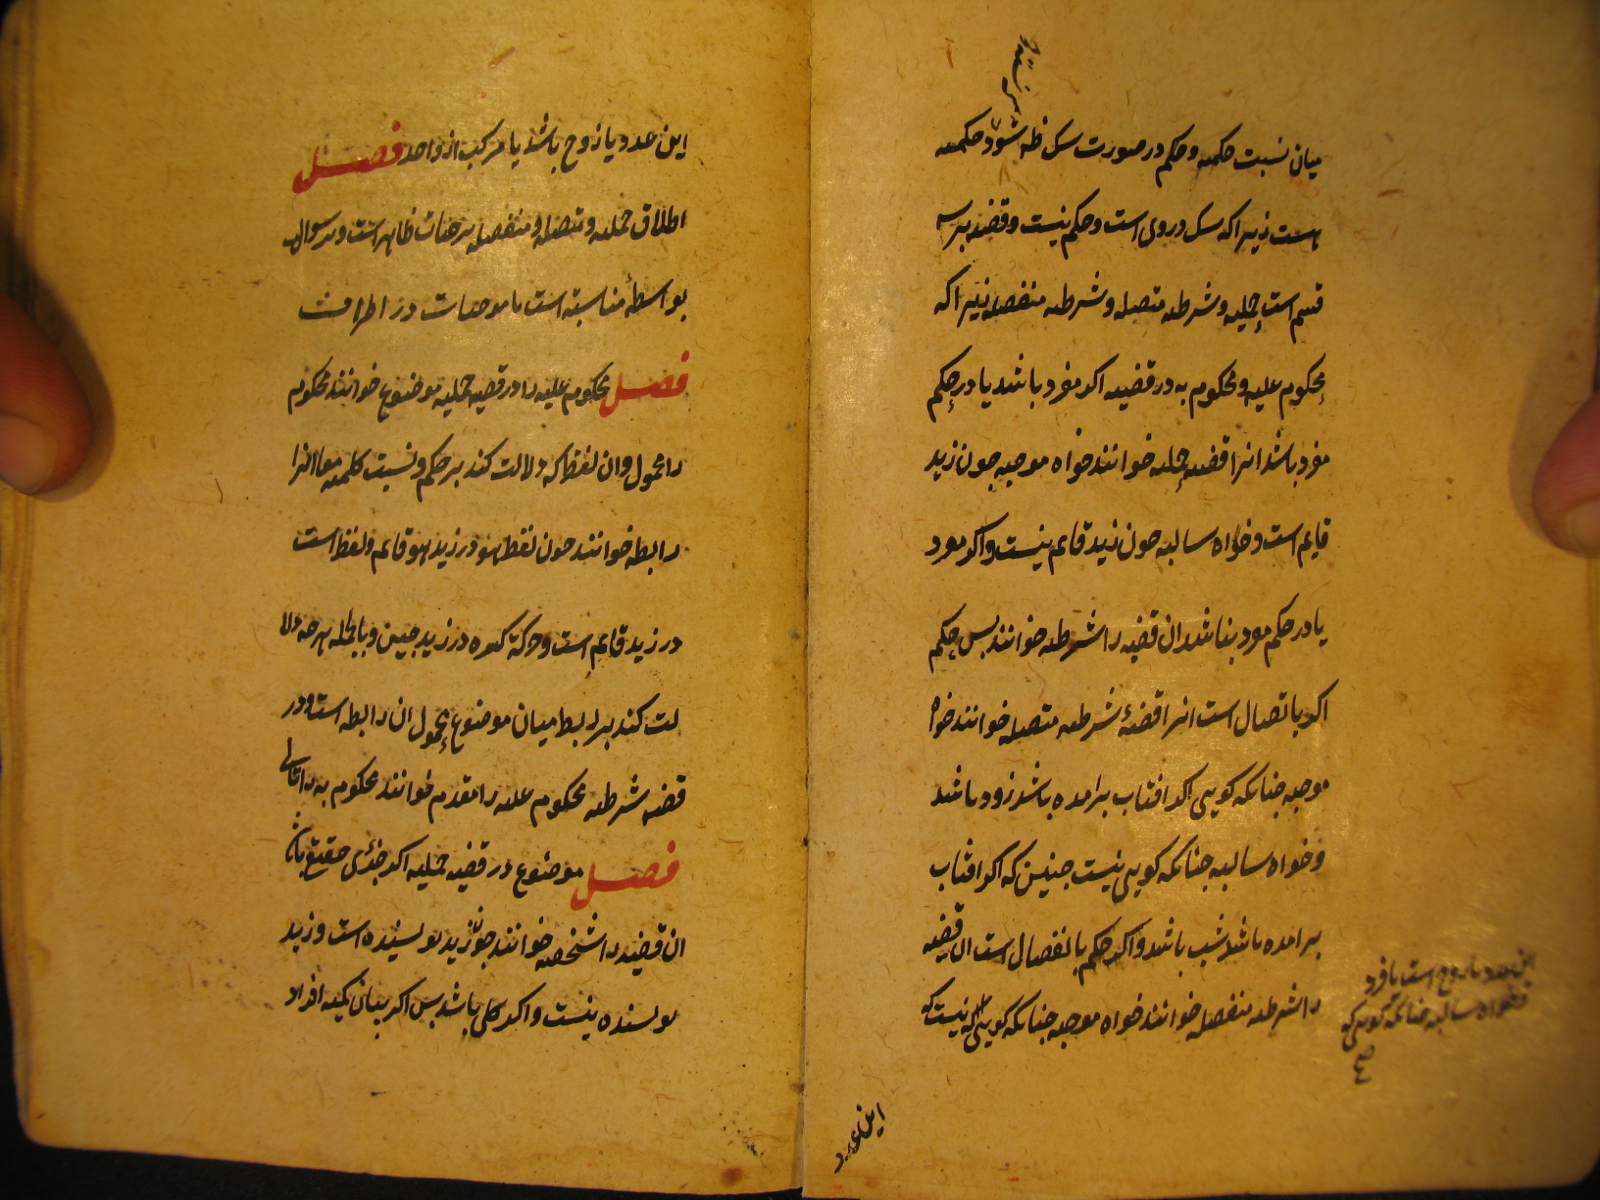 میان نسبت حکمیه و حکم در صورت شک ظ شود حکمیه
هست زیرا که شک در وی است و حکم نیست و قضیه بر سه
قسم است حملیه و شرطیه متصله و شرطیه منفصله زیرا که
محکوم علیه و محکوم به در قضیه اکر مفرد باشد یا در حکم
مفرد باشد انرا قضیه حملیه خوانند خواه موجبه چون زید
قایم است و خواه سالبه چون زید قایم نیست و اکر مفرد
یا در حکم مفرد نباشد ان قضیه را شرطیه خوانند بس حکم
اکر باتصال است انرا قضیهٔ شرطیه متصله خوانند خواه
موجبه جنانکه کویی اکر افتاب برامده باشد روز باشد
و خواه سالبه جنانکه کویی نیست جنین که اکر افتاب
برامده باشد شب باشد و اکر حکم بانفصال است ان قضیه
را شرطیه منفصله خوانند خواه موجبه جنانکه کویی که نیست که
این عدد یا زوج است یا فرد
و خواه سالبه جنانکه کویی که
صح
این عدد
این عدد یا زوج باشد یا مرکب از واحد فصل
اطلاق حملیه و متصله و منفصله بر موجبات ظاهر است و بر سوالب
بواسطهٔ مناسبة است با موجبات در اطراف
فصل محکوم علیه را در قضیه حملیه موضوع خوانند محکوم به
را محمول و ان لفظ که دلالت کند بر حکم و نسبت حکمیه معا انرا
رابطه خوانند چون لفظ هو در زید هو قائم و لفظ است
در زید قایم است و حرکة کسره در زید دبیر و بالجمله هرچه دلا
لت کند بر ربط میان موضوع و محمول ان رابطه است و در
قضیه شرطیه محکوم علیه را مقدم خوانند محکوم به را تالی
فصل موضوع در قضیه حملیه اکر جزئی حقیقی باشد
ان قضیه را شخصیه خوانند چون زید نویسنده است و زید
نویسنده نیست و اکر کلی باشد بس اکر بیان کمیه افراد